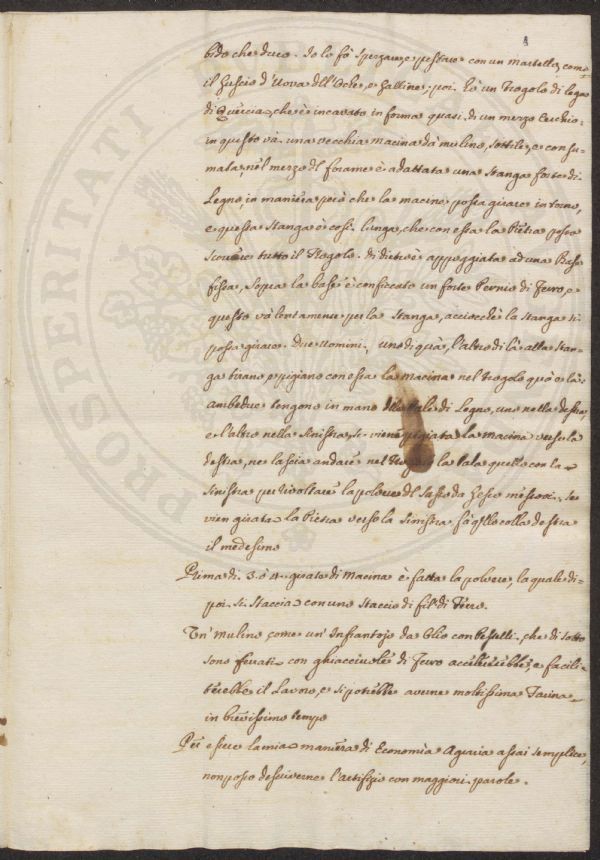 bido che duro. Io lo fò spezzare, e pestare con un Martello, come
il guscio d'Uova dell'Oche, e Galline; poi hò un Trogolo di legno
di Quercia, che è incavato in forma quasi di un mezzo Cerchio:
in questo và una vecchia macina dà mulino, sottile, e consu-
mata: nel mezzo del forame è adattata una Stanga forte di
Legno, in maniera però che la macina possa girare intorno,
e questa Stanga è così lunga, che con essa la Pietra possa
scorrere tutto il Trogolo. di dietro è appoggiata ad una Base
fissa, sopra la base è conficcato un forte Pernio di Ferro, e
questo và lentamente per la Stanga, acciocchè la stanga si
possa girare. Due Uomini, uno di quà, l'altro di là alla Stan-
ga tirano, e pigiano con essa la macina nel Trogolo quà e là:
ambedue tengono in mano delle Pale di Legno, uno nella destra,
e l'altro nella sinistra, se viene pigiata la macina verso la
destra, ne lascia andare nel Trogolo la Pala quello con la
sinistra per rivoltare la polvere del Sasso da Gesso. Se
vien girata la Pietra verso la sinistra fà qllo colla destra
il medesimo
Prima di 3. ò 4. girate di Macina è fatta la polvere, la quale di-
poi si Staccia con uno Staccio di fil di Ferro.
Un' Mulino come un' Infrantojo da Olio con Pestelli, che di sotto
sono ferrati con ghiacciuole di Ferro accelererebbe, e facili-
terebbe il Lavoro, e si potrebbe averne moltissima Farina
in brevissimo tempo
Per essere la mia maniera di Economìa Agraria assai semplice,
non posso descriverne l'artifizio con maggiori parole.
PROSPERITATI